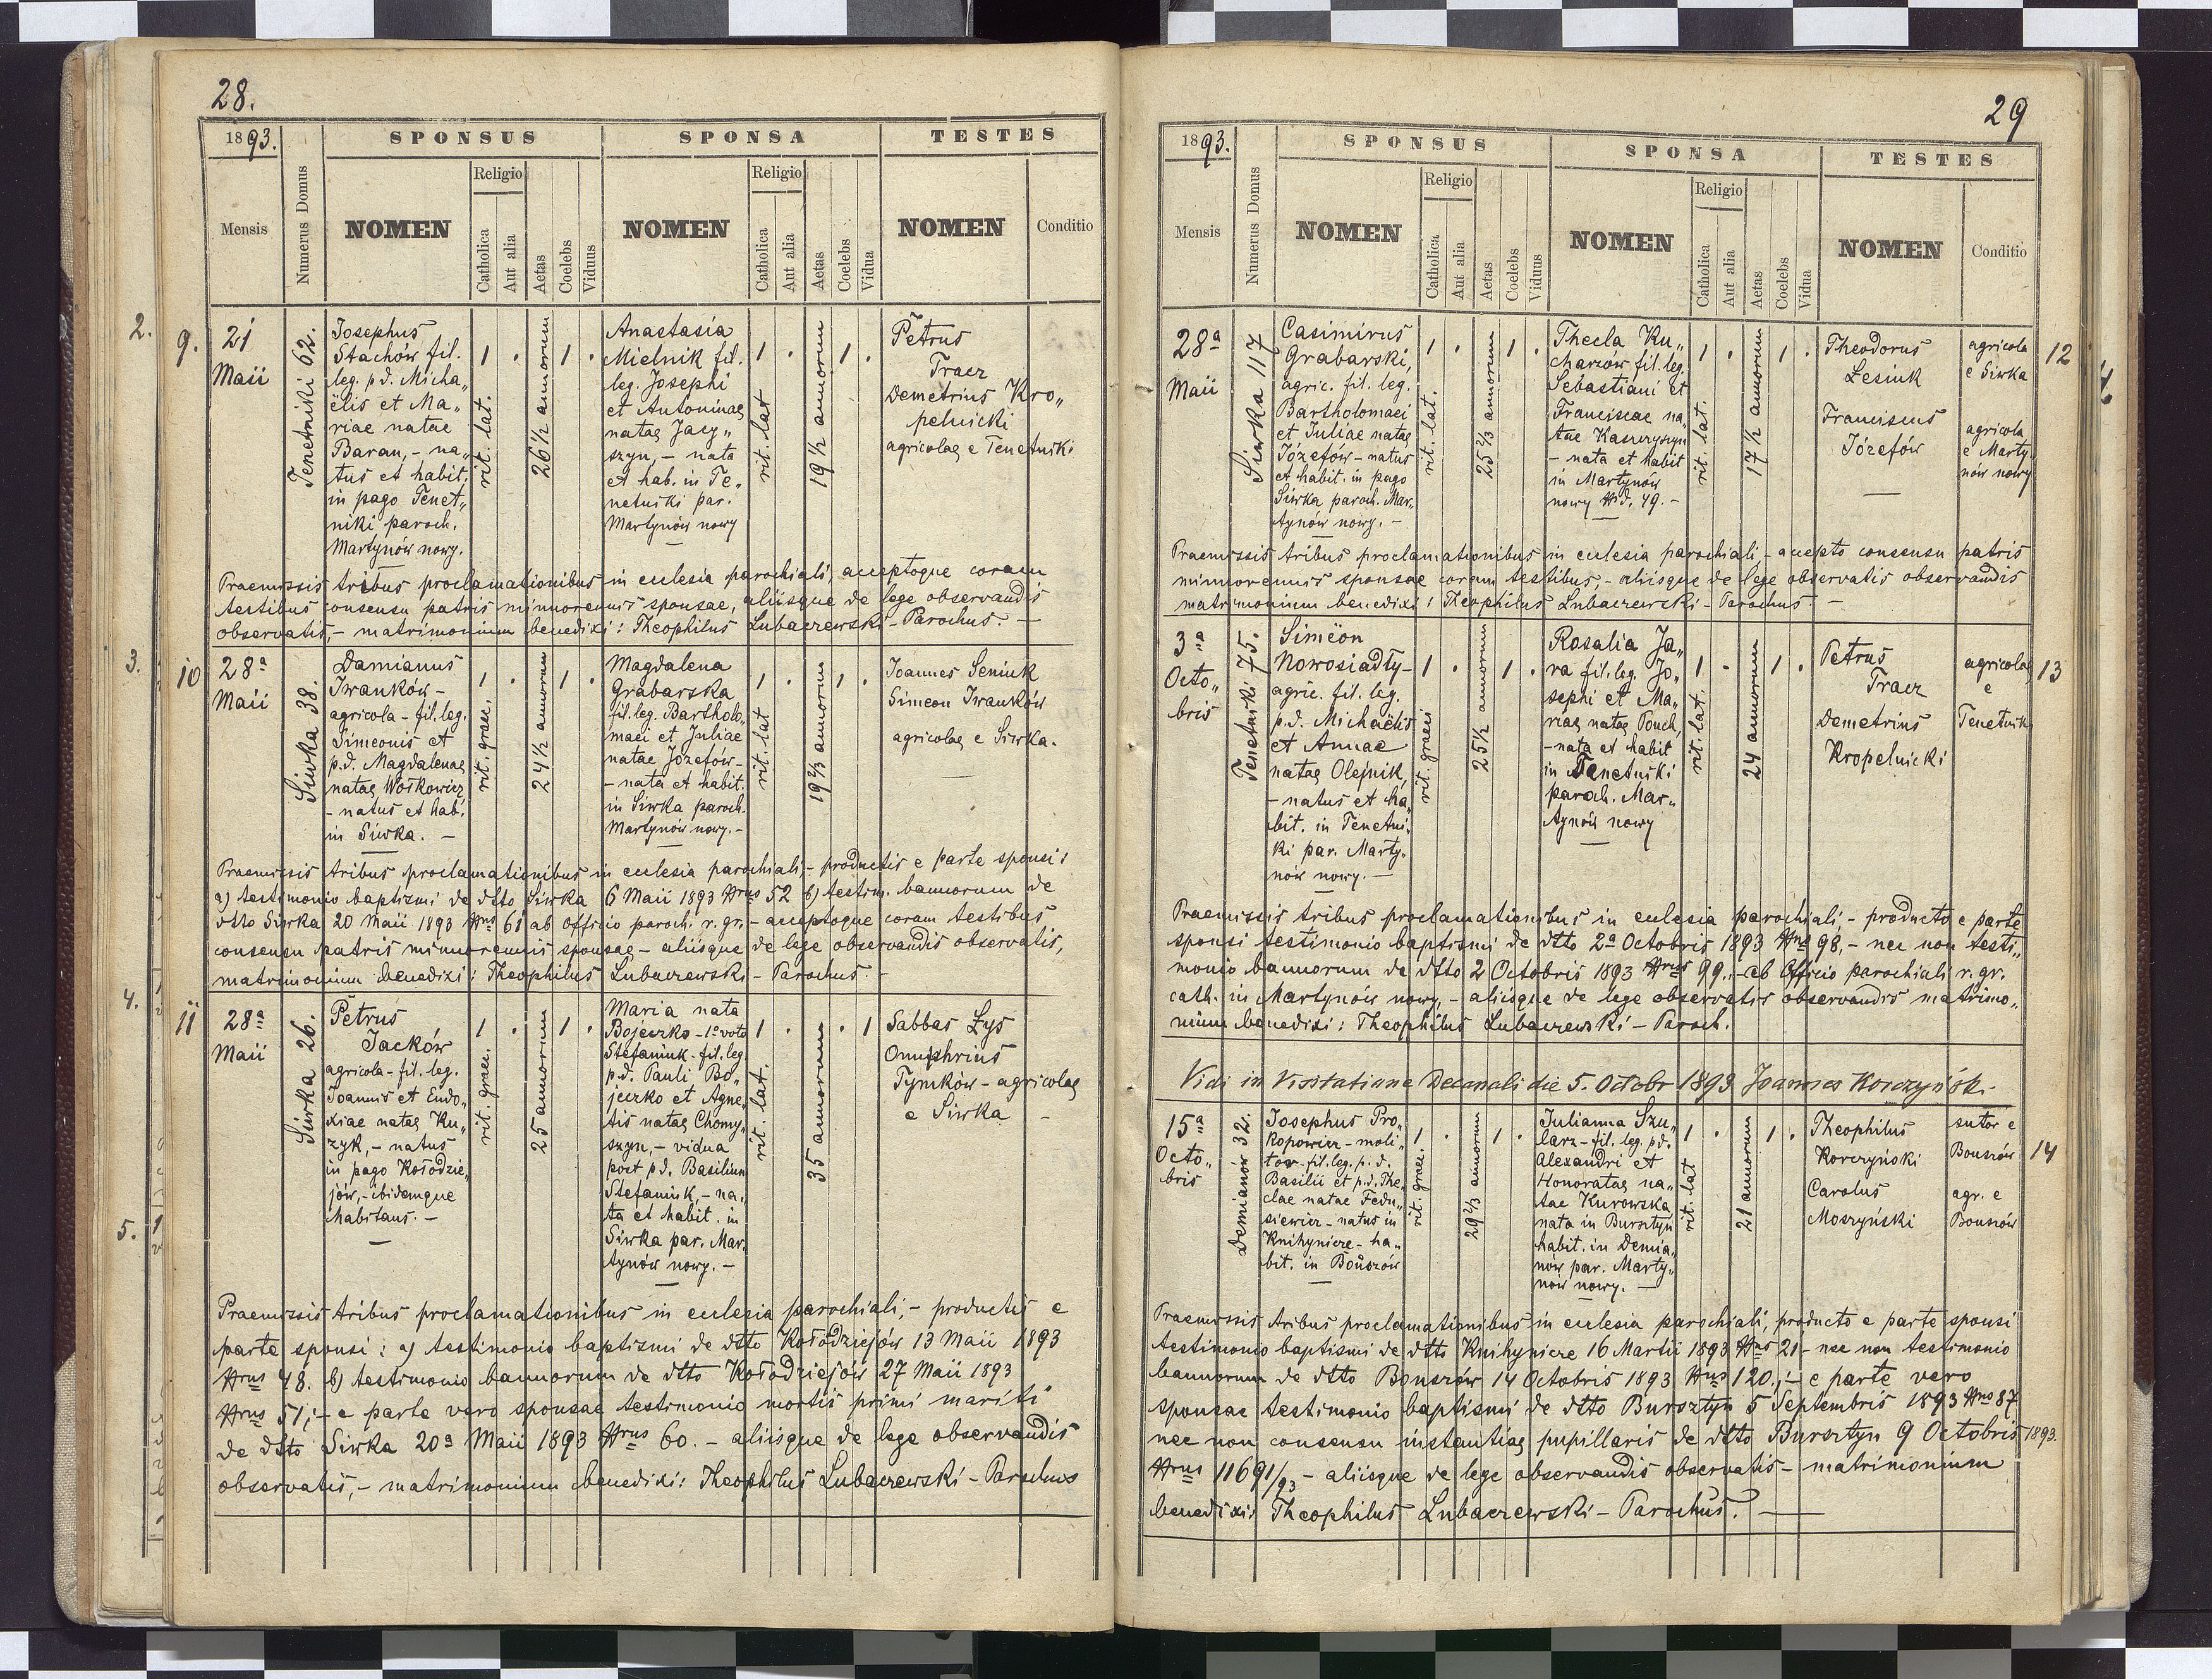 28.
1893.
SPONSUS
SPONSA
TESTES
Mensis
Numerus Domus
NOMEN
Religio
Catholica
Aut alia
Aetas
Coelebs
Viduus
NOMEN
Religio
Catholica
Aut alia
Aetas
Coelebs
Vidua
NOMEN
Conditio
2.
9.
21
Maii
Tenetniki 62.
Josephus
Stachów fil.
leg. p.d. Micha„
ëlis et Ma„
riae natae
Baran, - na„
tus et habit.
in pago Tenet„
niki paroch.
Martynów nowy.
1
rit. lat.
.
26 1/2 annorum
1
.
Anastasia
Mielnik fil.
leg. Josephi
et Antoninae
natae Jacy„
szyn, - nata
et hab. in Te„
netniki par.
Martynów nowy
1
rit. lat
.
19 1/2 annorum
1
.
Petrus
Tracz
Demetrius Kro„
pelnicki
agricolae e Tenetniki
Praemissis tribus proclamationibus in ecclesia parochiali, acceptoque coram
testibus consensu patris minorennis sponsae, aliisque de lege observandis
observatis, - matrimonium benedixi: Theophilus Lubaczewski - Parochus. -
3.
10
28ª
Maii
Siwka 38.
Damianus
Iwanków -
agricola - fil. leg.
Simeonis et
p.d. Magdalenae
natae Woskowicz
- natus et hab.
in Siwka. -
1
rit. graec.
.
24 1/2 annorum
1
.
Magdalena
Grabarska
fil. leg. Bartholo„
maei et Juliae
natae Józefów -
- nata et habit.
in Siwka paroch.
Martynów nowy. -
1
rit. lat
.
19 2/3 annorum
1
.
Joannes Seniuk
Simeon Iwanków
agricolae e Siwka.
Praemissis tribus proclamationibus in ecclesia parochiali, - productis e parte sponsi:
a) testimonio baptismi de dtto Siwka 6 Maii 1893 Nrus 52 b) testim. bannorum de
dtto Siwka 20 Maii 1893 Nrus 61 ab officio paroch. r. gr. - acceptoque coram testibus
consensu patris minorennis sponsae - aliisque de lege observandis observatis,
matrimonium benedixi: Theophilus Lubaczewski - Parochus. -
4.
11
28ª
Maii
Siwka 26.
Petrus
Jacków
agricola - fil. leg.
Joannis et Eudo„
xiae natae Ku„
zyk, - natus
in pago Kołodzie„
jów, - ibidemque
habitans. -
1
rit graec.
.
25 annorum
1
.
Maria nata
Bojeczko - 1º voto
Stefaniuk - fil. leg.
p.d. Pauli Bo„
jeczko et Agne„
tis natae Chomy„
szyn, - vidua
post p.d. Basilium
Stefaniuk, - na„
ta et habit. in
Siwka par. Mar„
tynów nowy. -
1
rit. lat.
.
35 annorum
.
1
Sabbas Łys
Onuphrius
Tymków - agricolae
e Siwka -
5.
Praemissis tribus proclamationibus in ecclesia parochiali, - productis e
parte sponsi: a) testimonio baptismi de dtto Kołodziejów 13 Maii 1893
Nrus 48. b) testimonio bannorum de dtto Kołodziejów 27 Maii 1893
Nrus 51; - e parte vero sponsae testimonio mortis primi mariti
de dtto Siwka 20ª Maii 1893 Nrus 60. - aliisque de lege observandis
observatis, - matrimonium benedixi: Theophilus Lubaczewski - Parochus
29
1893.
SPONSUS
SPONSA
TESTES
Mensis
Numerus Domus
NOMEN
Religio
Catholica
Aut alia
Aetas
Coelebs
Viduus
NOMEN
Religio
Catholica
Aut alia
Aetas
Coelebs
Vidua
NOMEN
Conditio
28ª
Maii
Siwka 117
Casimirus
Grabarski,
agric. fil. leg.
Bartholomaei
et Juliae natae
Józefów - natus
et habit. in pago
Siwka paroch. Mar„
tynów nowy. -
1
rit. lat.
.
25 2/3 annorum
1
.
Thecla Ku„
charzów fil. leg.
Sebastiani et
Franciscae na„
tae
- nata et habit
in Martynów
nowy Nd. 49. -
1
rit. lat.
.
17 1/2 annorum
1
.
Theodorus
Lesiuk
Franciscus
Józefów
agricola
e Siwka
agricola
e Marty„
nów nowy
12
Praemissis tribus proclamationibus in ecclesia parochiali, - accepto consensu patris
minorennis sponsae coram testibus, - aliisque de lege observatis observandis
matrimonium benedixi: Theophilus Lubaczewski - Parochus. -
3ª
Octo„
bris
Tenetniki 75.
Simëon
Nowosiadły -
agric. fil. leg.
p.d. Michaëlis
et Annae
natae Olejnik,
- natus et ha„
bit. in Tenetni„
ki par. Marty„
nów nowy. -
1
rit. graeci
.
25 1/2 annorum
1
.
Rosalia Ja„
ra fil. leg. Jo„
sephi et Ma„
riae natae Pouch,
- nata et habit
in Tenetniki
paroch. Mar„
tynów nowy
1
rit. lat.
.
24 annorum
1
.
Petrus
Tracz
Demetrius
Kropelnicki
agricolae
e
Tenetniki
13
Praemissis tribus proclamationibus in ecclesia parochiali, - producto e parte
sponsi testimonio baptismi de dtto 2ª Octobris 1893 Nrus 98, - nec non testi„
monio bannorum de dtto 2 Octobris 1893 Nrus 99., - ab Officio parochiali r. gr.
cath. in Martynów nowy, - aliisque de lege observatis observandis matrimo„
nium benedixi: Theophilus Lubaczewski - Paroch.
Vidi in Visitatione Decanali die 5. Octobr 1893 Joannes Korczyńsk.
15ª
Octo„
bris
Demianów 32.
Josephus Pro„
kopowicz - moli„
tor - fil. leg. p. d.
Basilii et p.d. The„
clae natae Fedu„
siewicz - natus in
Knihynicze - ha„
bit. in Bouszów
1
rit. graec.
.
29 2/3 annorum
1
.
Julianna Szu„
larz - fil. leg. p.d.
Alexandri et
Honoratae na„
tae Kurowska
nata in Bursztyn
habit. in Demia„
nów par. Marty„
nów nowy. -
1
rit. lat
.
21 annorum
1
.
Theophilus
Korczyński
Carolus
Moszyński
sutor e
Bouszów
agr. e
Bouszów
14
Praemissis tribus proclamationibus in ecclesia parochiali, producto e parte sponsi
testimonio baptismi de dtto Knihynicze 16 Martii 1893 Nrus 21 - nec non testimonio
bannorum de dtto Bouszów 14 Octobris 1893 Nrus 120.; - e parte vero
sponsae testimonio baptismi de dtto Bursztyn 5 Septembris 1893 Nrus 87
nec non consensu instantiae pupillaris de dtto Bursztyn 9 Octobris 1893.
Nrus 11691/93 - aliisque de lege observandis observatis - matrimonium
benedixi: Theophilus Lubaczewski - Parochus. -